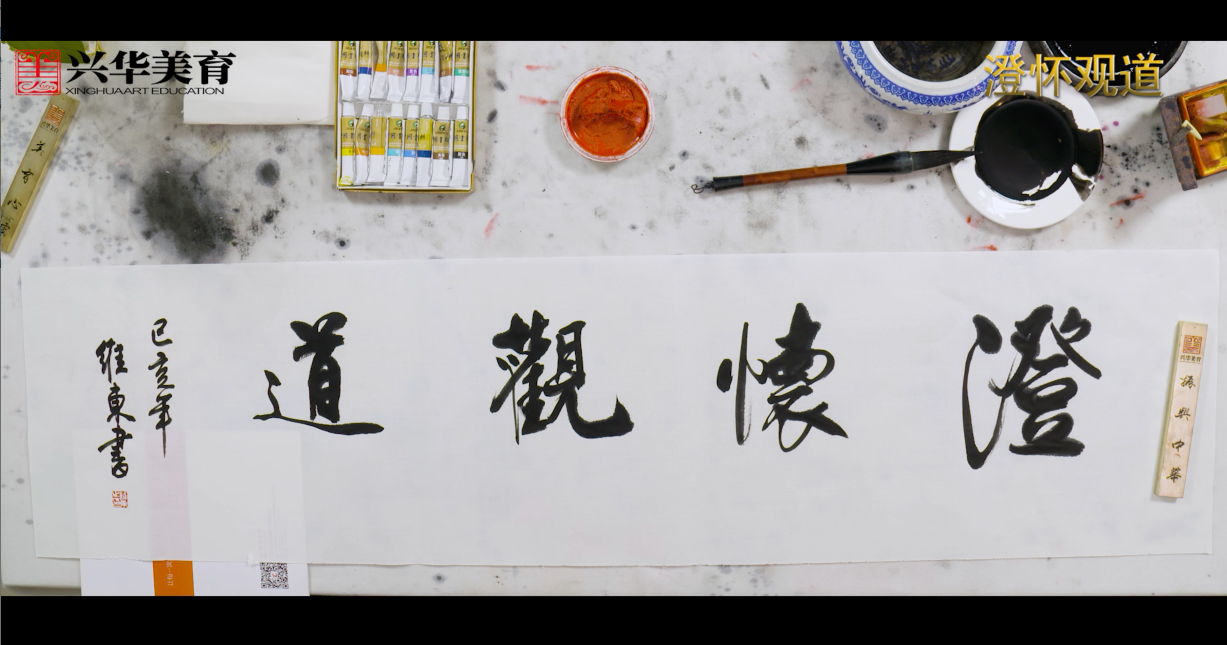 兴华美育
XINGHUAART EDUCATION
澄怀观道
澄懷觀道
己亥年
維東書
兴华美育
振興中華